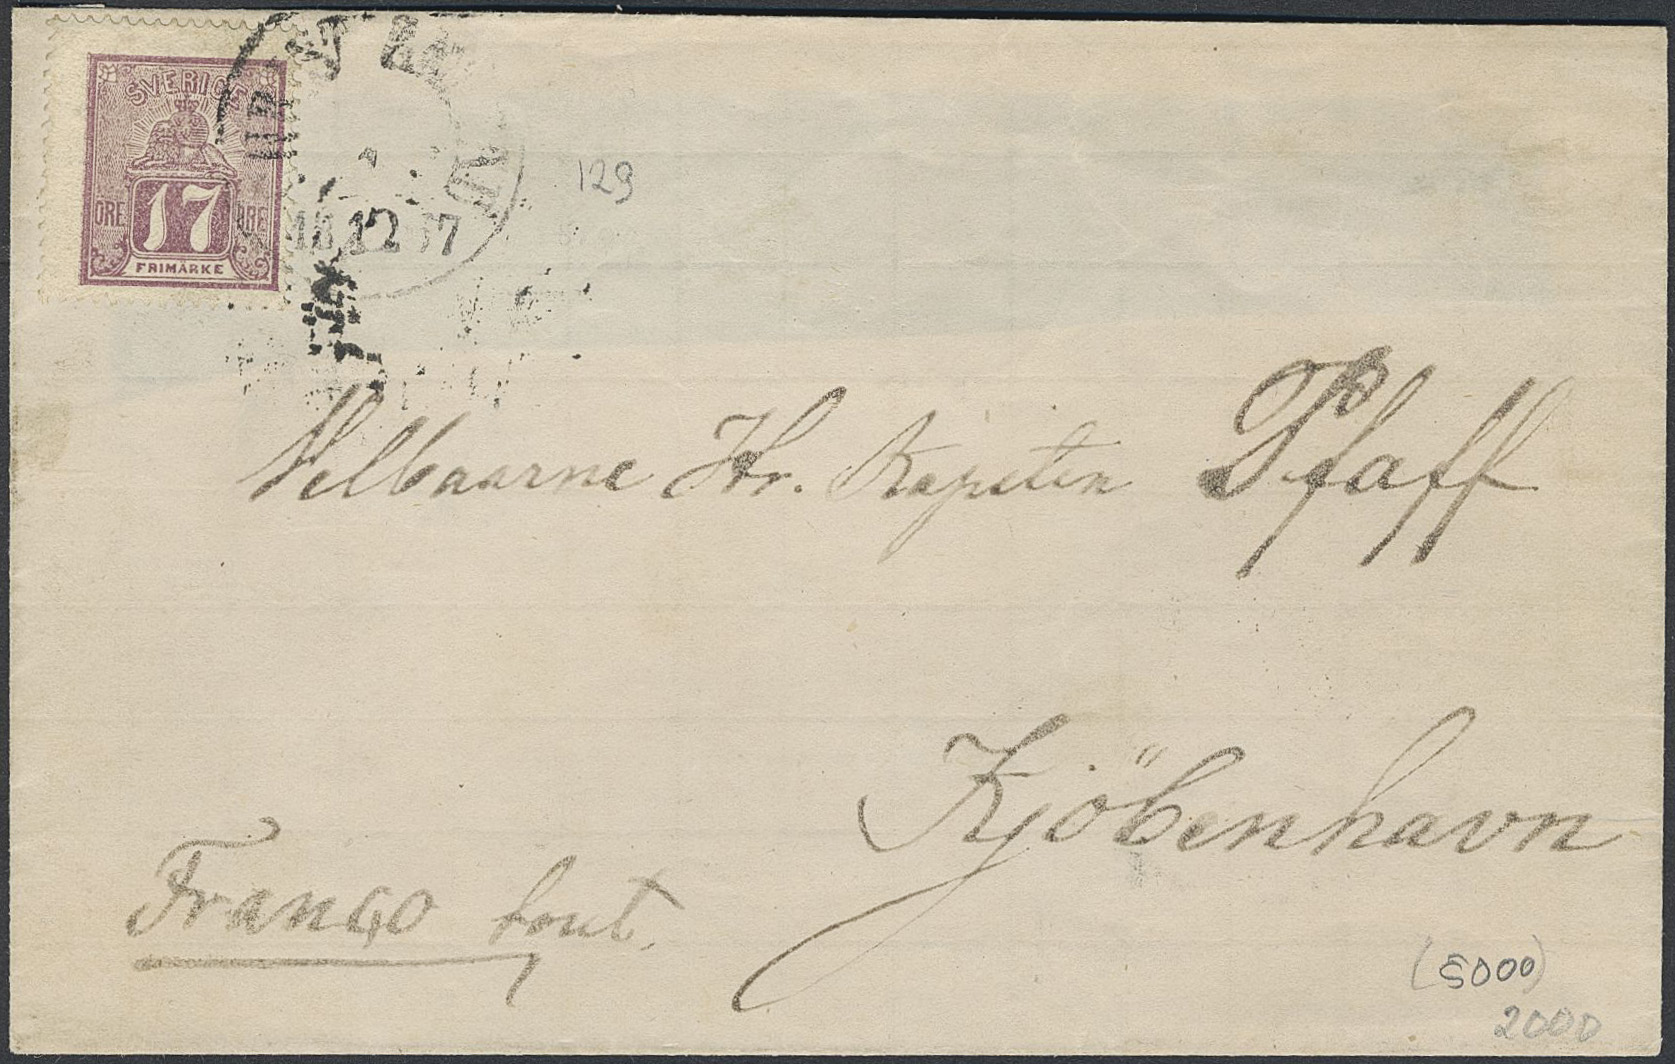 SVERIGE
ÖRE 17 ÖRE
FRIMÄRKE
12
129
Velbaarne Hr. Kapitein Pfaff
Kjöbenhavn
Franco tout.
(5000)
2000